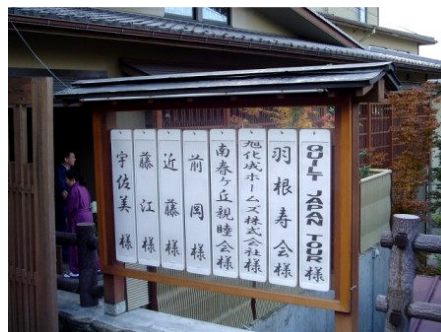 QUILT JAPAN TOUR 様
羽根寿会様
旭化成ホームズ株式会社様
南春ヶ丘親睦会様
前岡様
近藤様
藤江様
宇佐美様